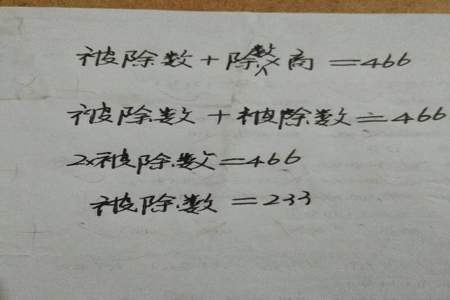 被除数+除数×商=466
被除数+被除数=466
2×被除数=466
被除数=233